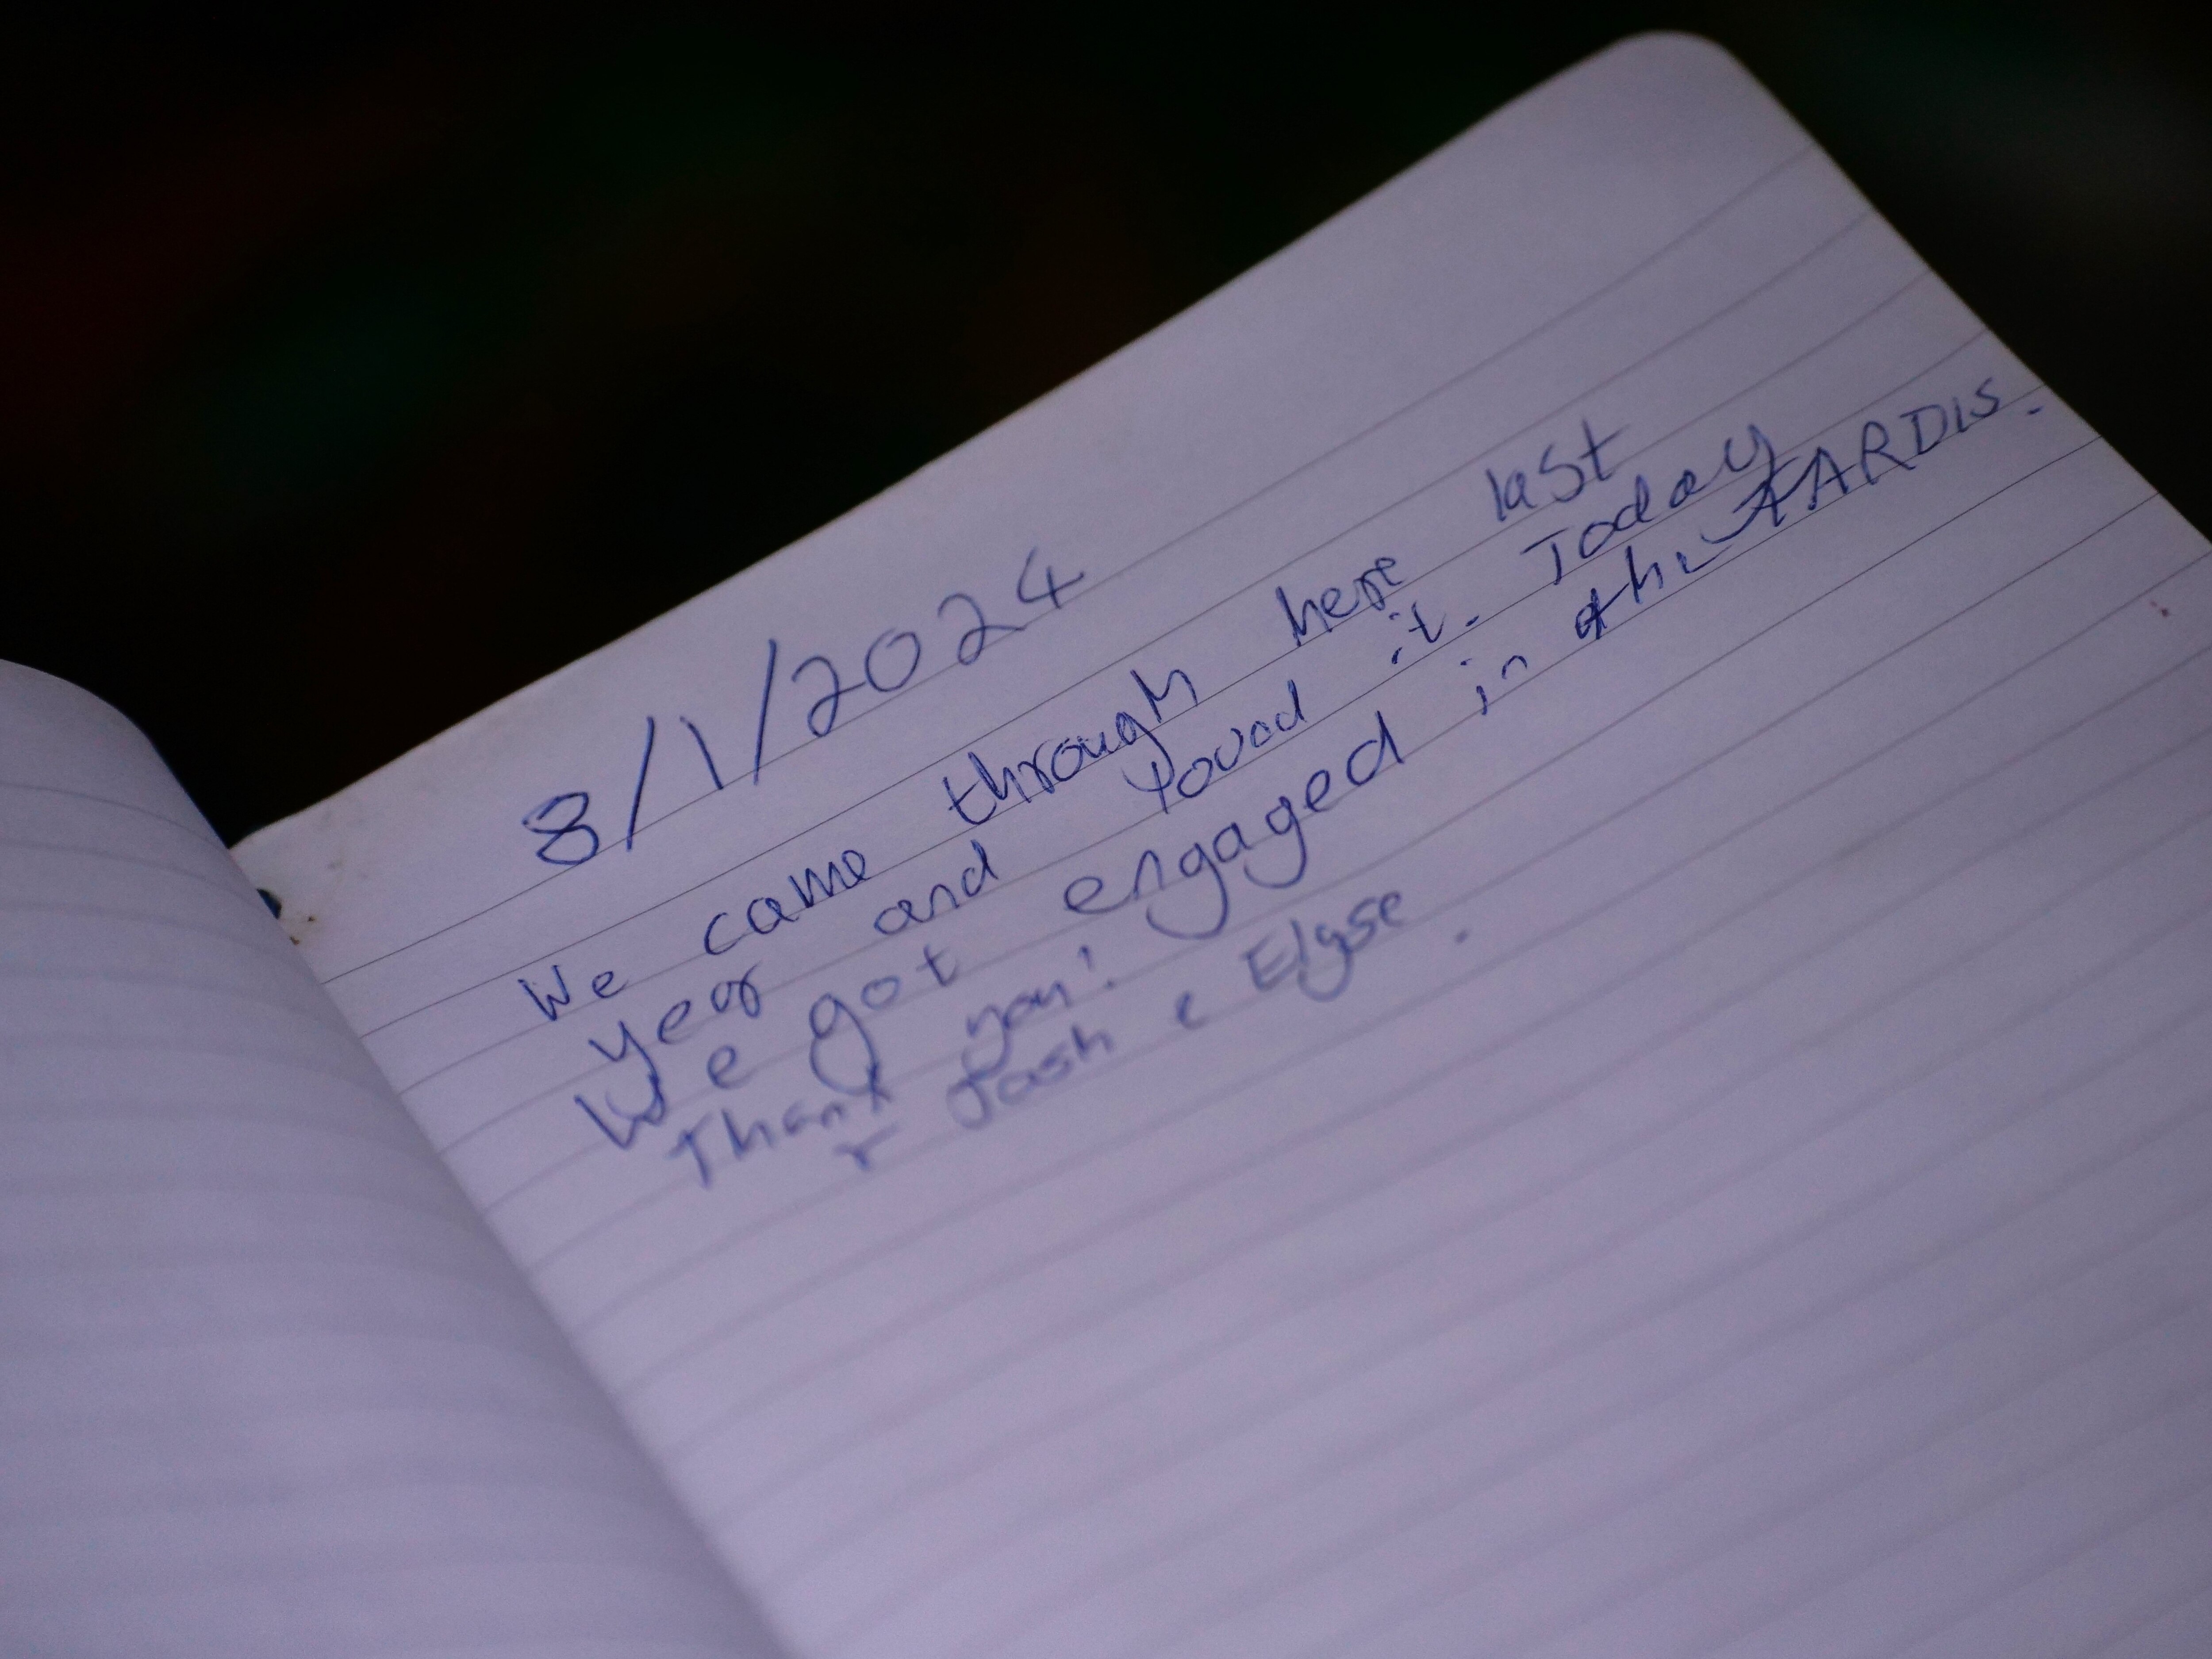 8/1/2024
We came through here last
year and loved it. Today
We got engaged in the TARDIS.
Thank you!
Josh & Elyse